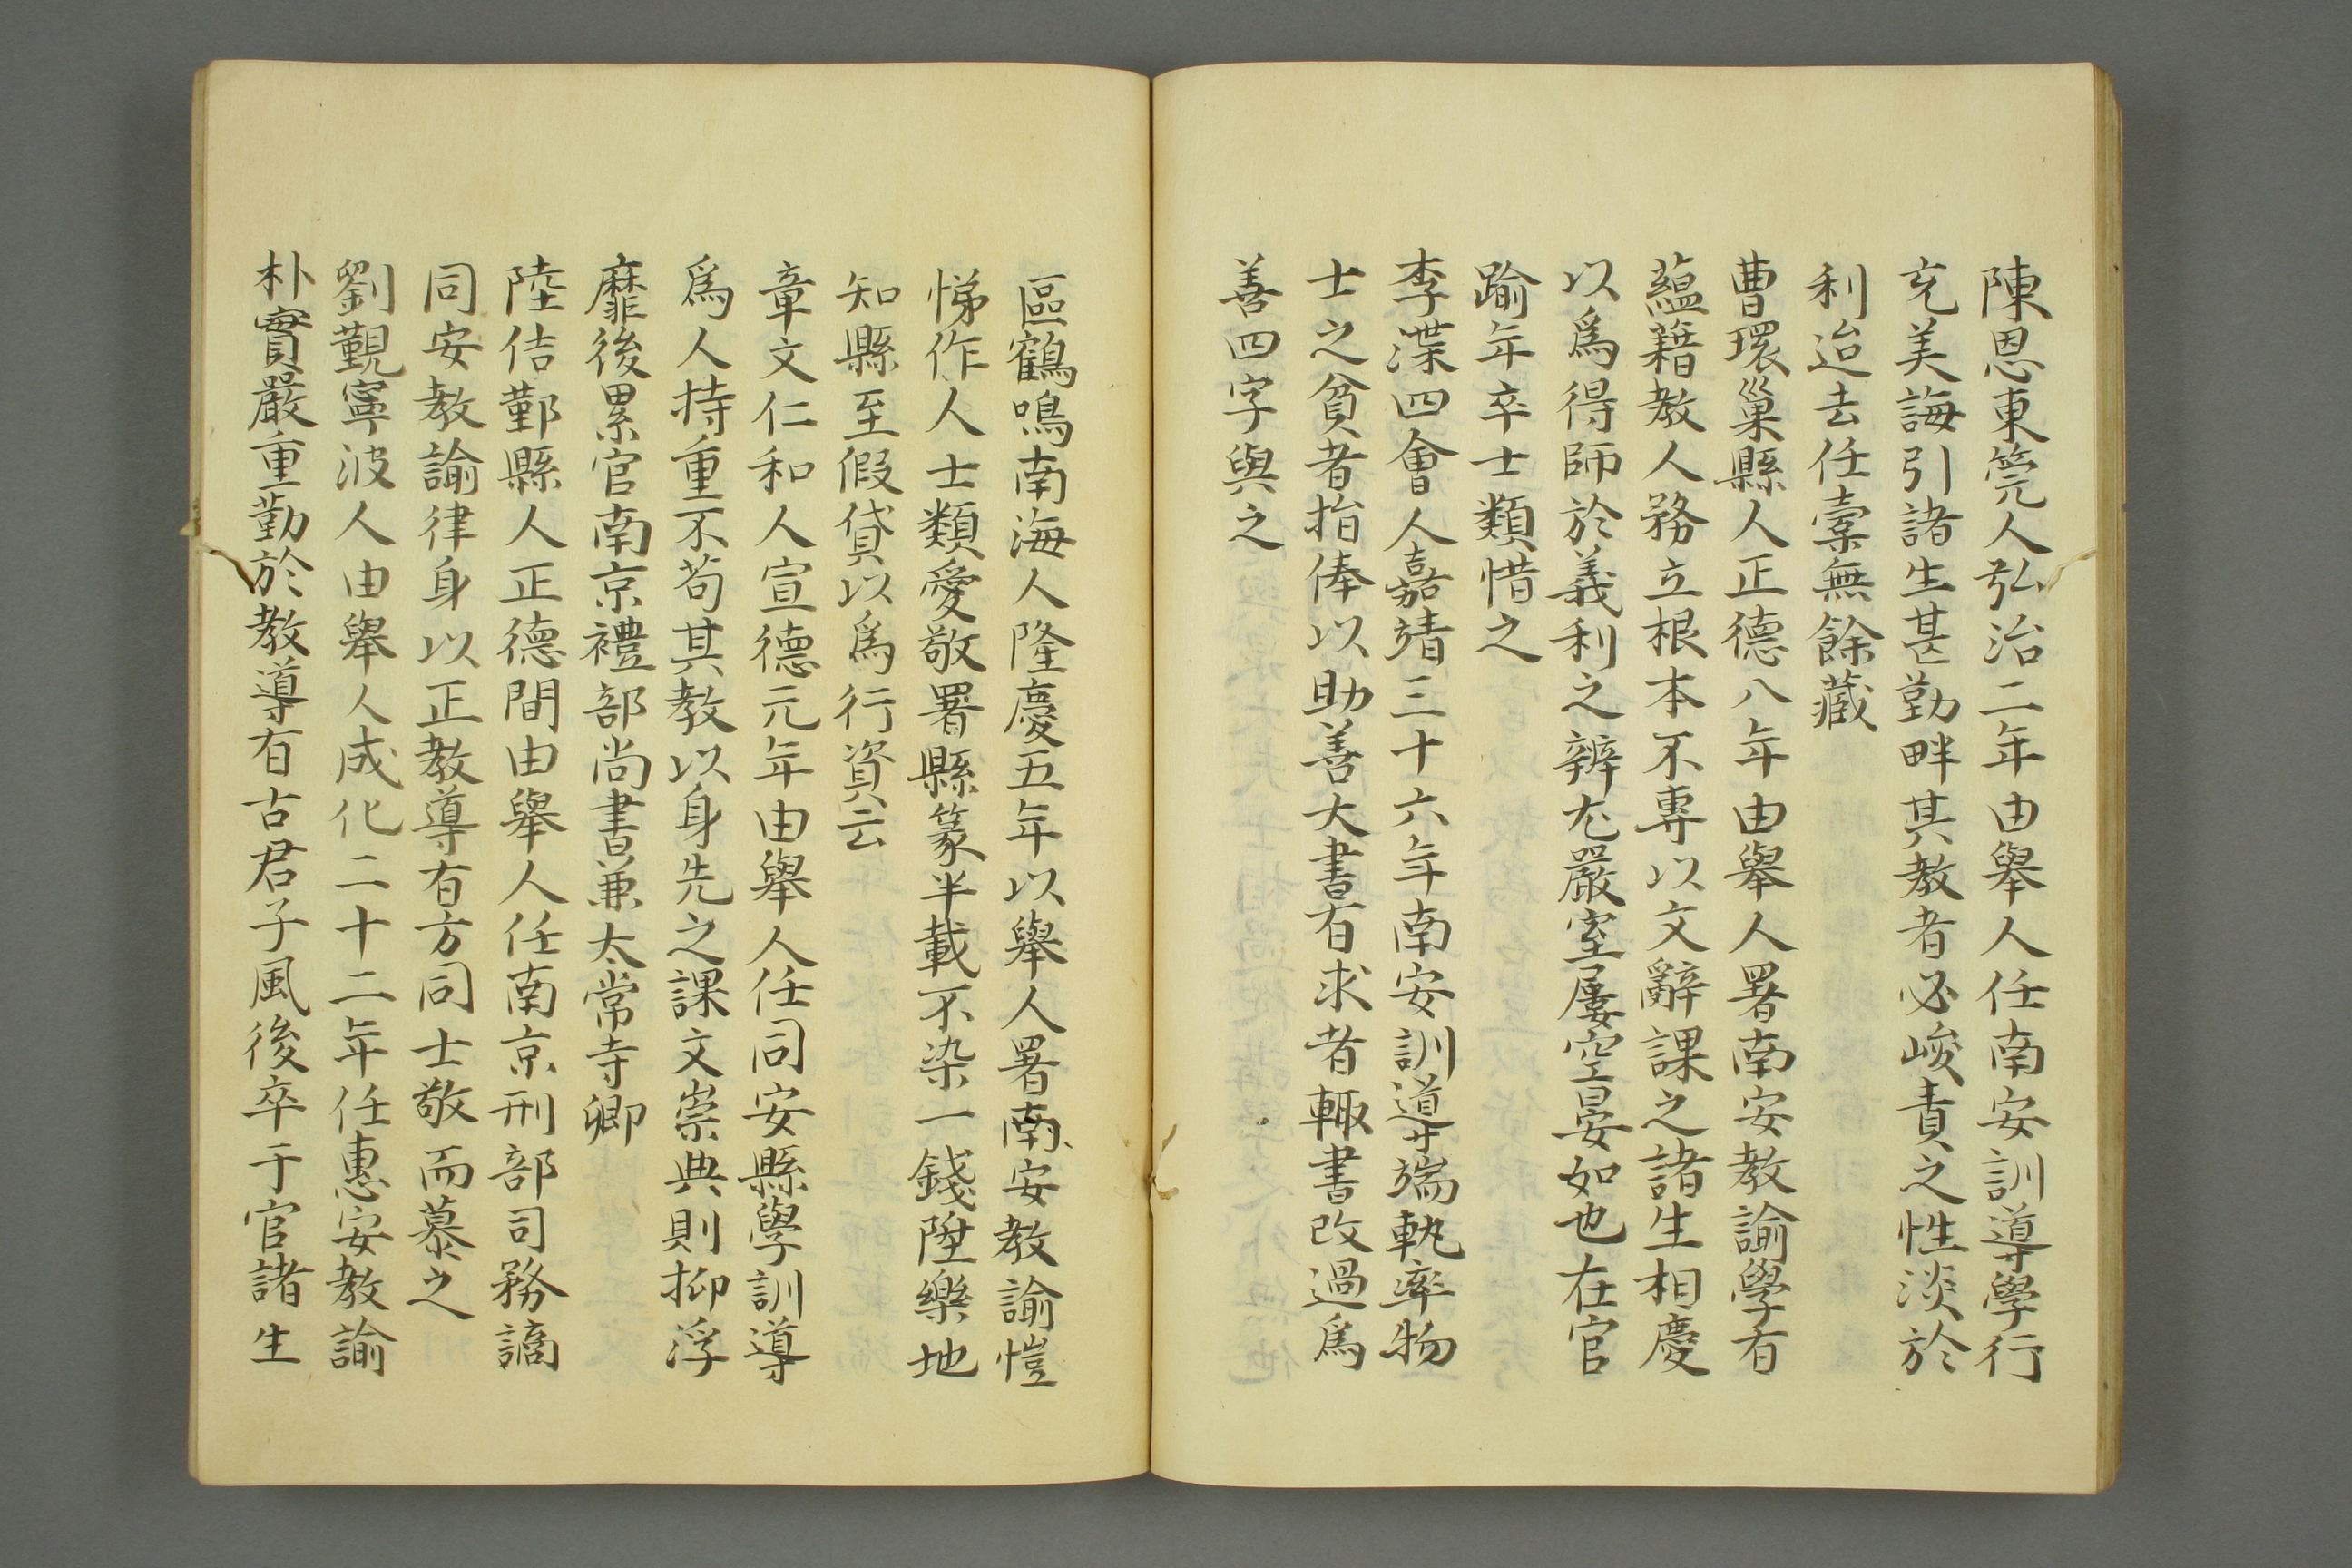 陳恩東筦人弘治二年由舉人任南安訓導學行
充美誨引諸生甚勤畔其教者必峻責之性淡於
利迨去任橐無餘藏
曹環巢縣人正德八年由舉人署南安教諭學有
蘊藉教人務立根本不專以文辭課之諸生相慶
以爲得師於義利之辨尤嚴室屢空晏如也在官
踰年卒士類惜之
李渫四會人嘉靖三十六年南安訓導端軌率物
士之貧者捐俸以助善大書有求者輙書改過爲
善四字與之
區鶴鳴南海人隆慶五年以舉人署南安教諭愷
悌作人士類愛敬署縣篆半載不染一錢陞樂地
知縣至假貸以爲行資云
章文仁和人宣德元年由舉人任同安縣學訓導
爲人持重不苟其教以身先之課文崇典則抑浮
靡後累官南京禮部尚書兼太常寺卿
陸佶鄞縣人正德間由舉人任南京刑部司務謫
同安教諭律身以正教導有方同士敬而慕之
劉覲寧波人由舉人成化二十二年任惠安教諭
朴實嚴重勤於教導有古君子風後卒于官諸生